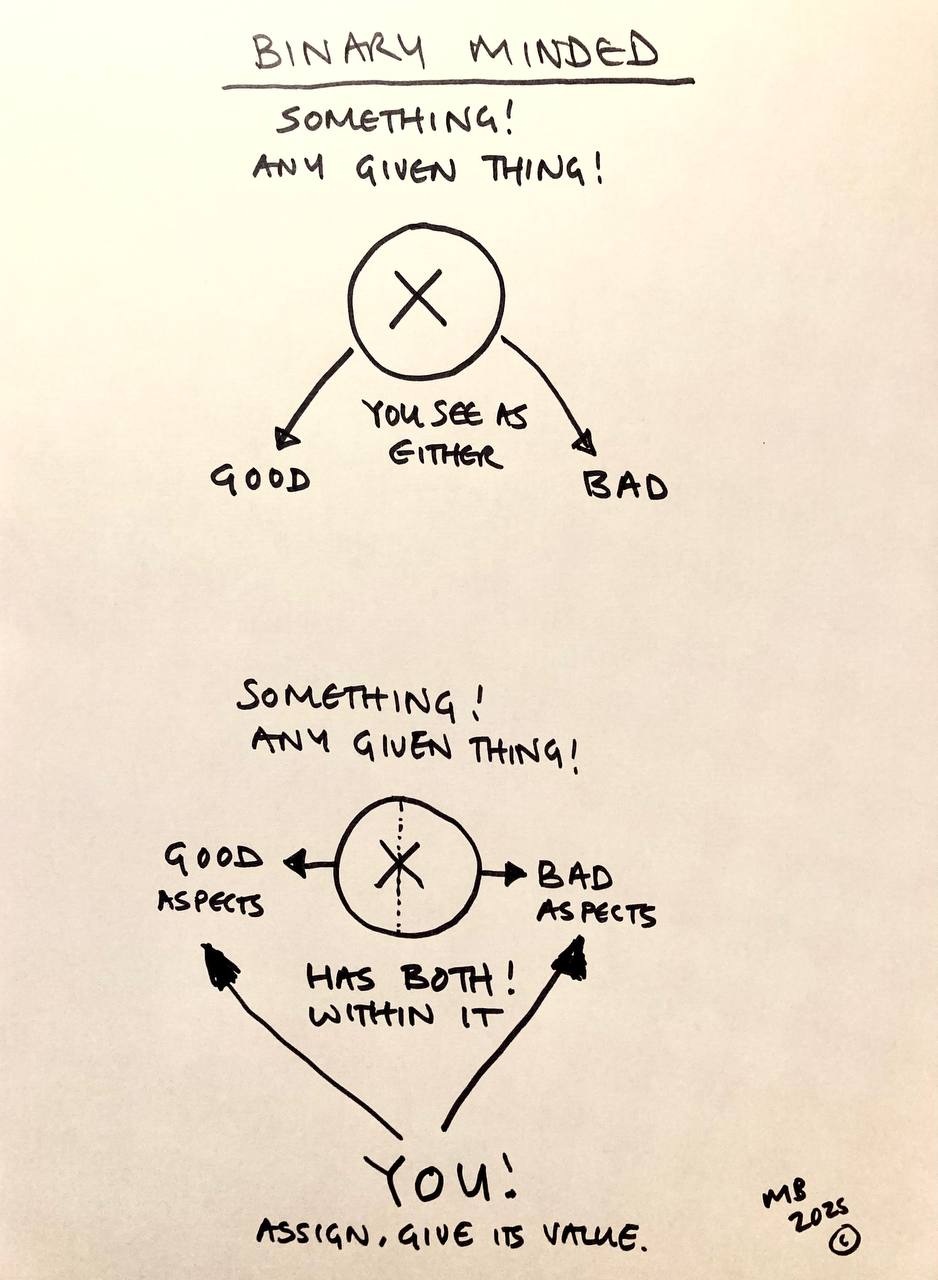 BINARY MINDED
SOMETHING!
ANY GIVEN THING!
X
YOU SEE AS
EITHER
GOOD
BAD
SOMETHING!
ANY GIVEN THING!
X
GOOD
ASPECTS
BAD
ASPECTS
HAS BOTH!
WITHIN IT
YOU!
ASSIGN, GIVE ITS VALUE.
MB
2025
©